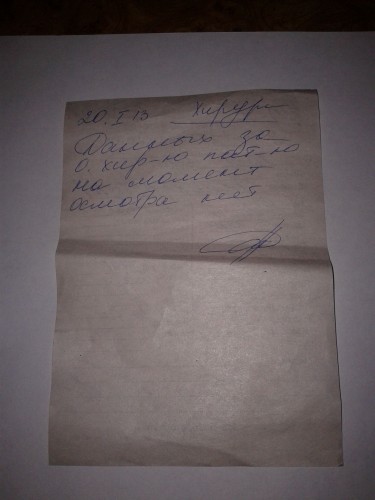 20.I.13 Хирург
Данных за
о. хир-ю пат-ю
на момент
осмотра нет